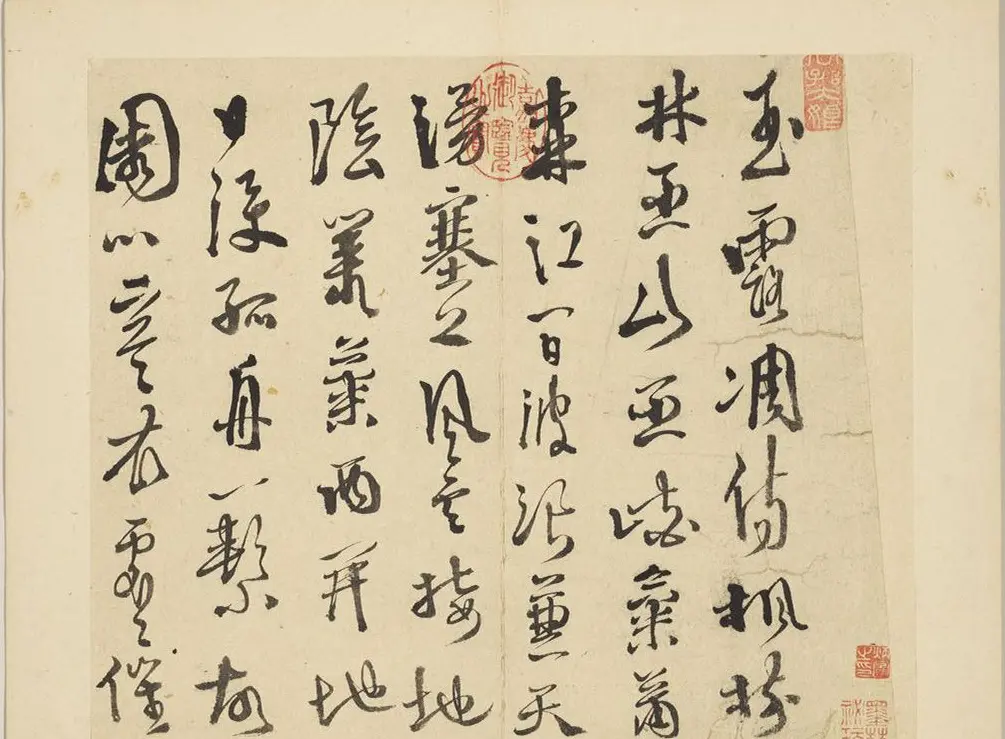 玉露凋傷楓樹
林巫山巫峽氣蕭
森江間波浪兼天
湧塞上風雲接地
陰叢菊兩開他
日淚孤舟一繫故
園心寒衣處〻催
嘉慶御覽之寶